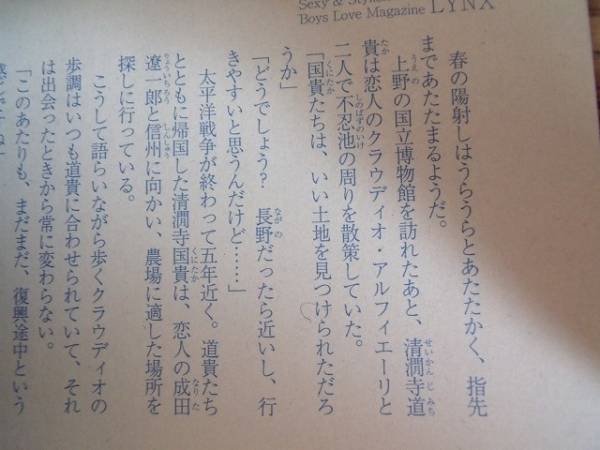 Sexy & Styli
Boys Love Magazine LYNX
春の陽射しはうらうらとあたたかく、指先
まであたたまるようだ。
上野の国立博物館を訪れたあと、清澗寺道
貴は恋人のクラウディオ・アルフィエーリと
二人で不忍池の周りを散策していた。
「国貴たちは、いい土地を見つけられただろ
うか」
「どうでしょう？　長野だったら近いし、行
きやすいと思うんだけど……」
太平洋戦争が終わって五年近く。道貴たち
とともに帰国した清澗寺国貴は、恋人の成田
遼一郎と信州に向かい、農場に適した場所を
探しに行っている。
こうして語らいながら歩くクラウディオの
歩調はいつも道貴に合わせられていて、それ
は出会ったときから常に変わらない。
「このあたりも、まだまだ、復興途中という